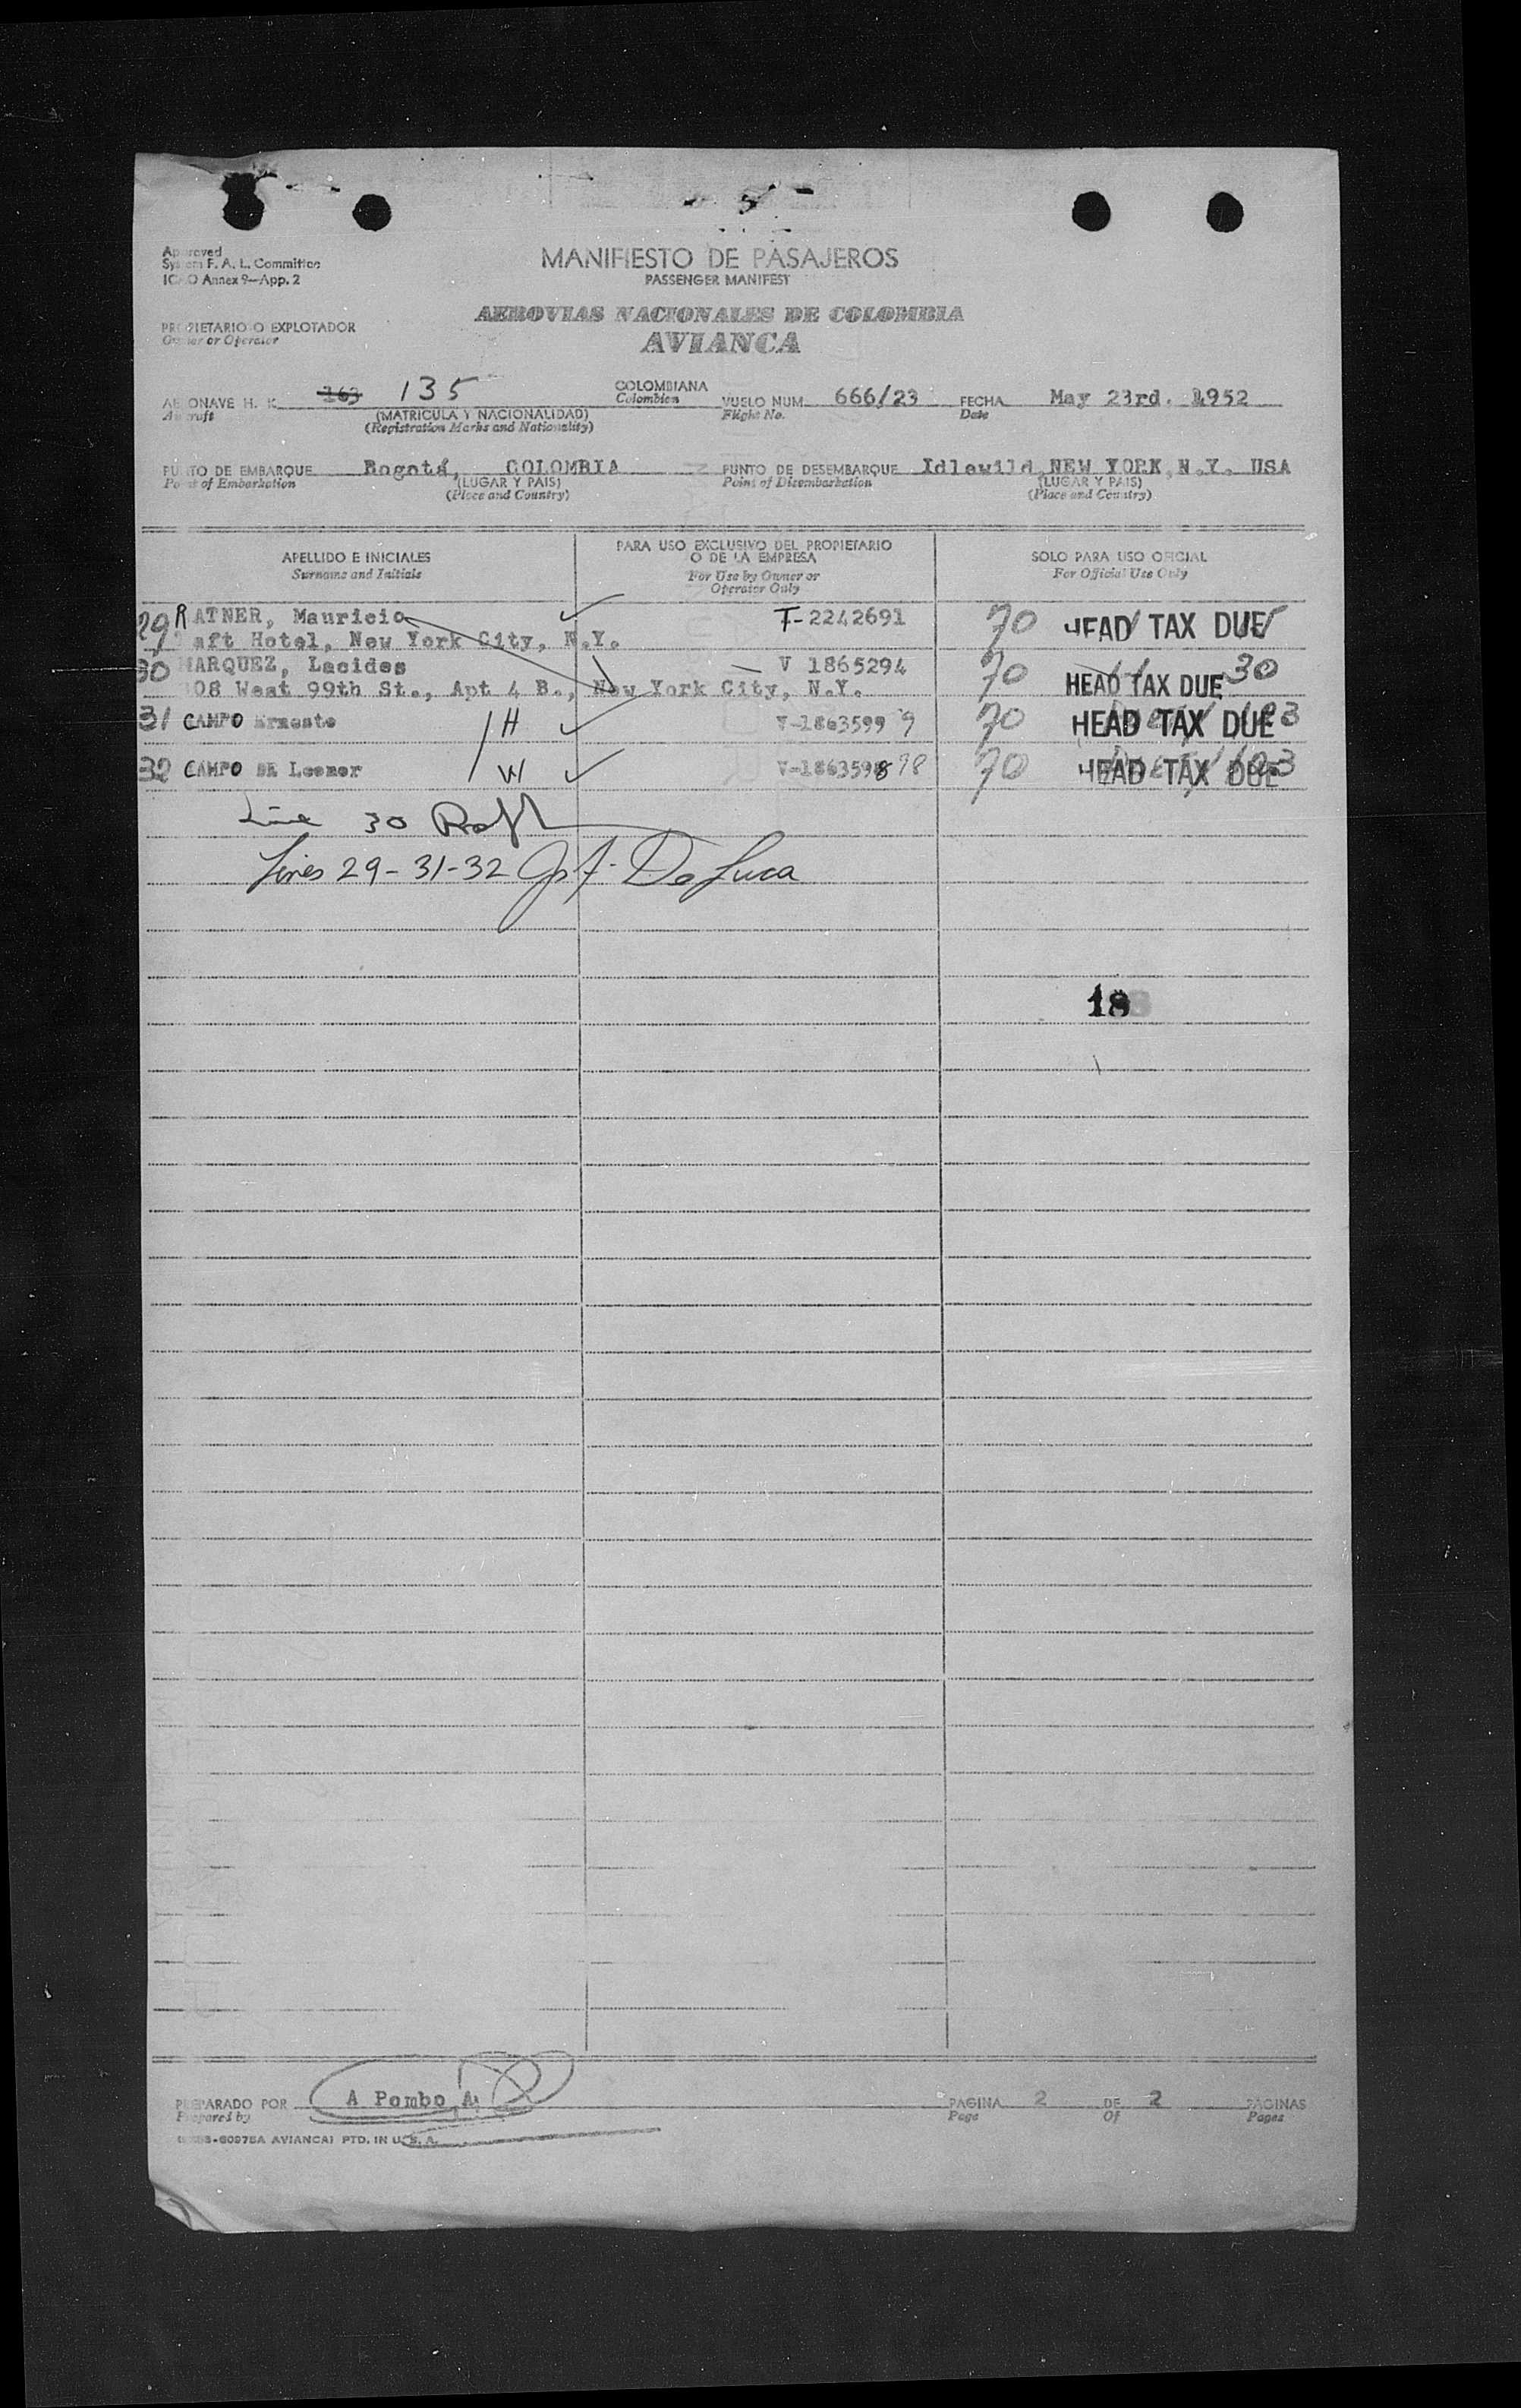 Approved
System F. A. L. Committee
ICAO Annex 9—App. 2
MANIFIESTO DE PASAJEROS
PASSENGER MANIFEST
PROPIETARIO O EXPLOTADOR
Owner or Operator
AEROVIAS NACIONALES DE COLOMBIA
AVIANCA
AERONAVE H. K. 163 135 COLOMBIANA VUELO NUM. 666/23 FECHA May 23rd. 1952
Aircraft (MATRICULA Y NACIONALIDAD) Colombian Flight No. Date
(Registration Marks and Nationality)
PUNTO DE EMBARQUE Bogotá, COLOMBIA PUNTO DE DESEMBARQUE Idlewild, NEW YORK, N.Y. USA
Point of Embarkation (LUGAR Y PAIS) Point of Disembarkation (LUGAR Y PAIS)
(Place and Country) (Place and Country)
APELLIDO E INICIALES
Surname and Initials
PARA USO EXCLUSIVO DEL PROPIETARIO
O DE LA EMPRESA
For Use by Owner or
Operator Only
SOLO PARA USO OFICIAL
For Official Use Only
29 RATNER, Mauricio T-2242691 70 HEAD TAX DUE
Taft Hotel, New York City, N.Y.
30 MARQUEZ, Lacides V 1865294 70 HEAD TAX DUE 30
308 West 99th St., Apt 4 B., New York City, N.Y.
31 CAMPO Ernesto H V-1863599 9 70 HEAD TAX DUE
32 CAMPO DE Leonor W V-1863598 98 70 HEAD TAX DUE
Line 30
Lines 29-31-32 De Luca
18
PREPARADO POR A Pombo A. PAGINA 2 DE 2 PAGINAS
Prepared by Page Of Pages
AVIANCA) PTD. IN U. S. A.